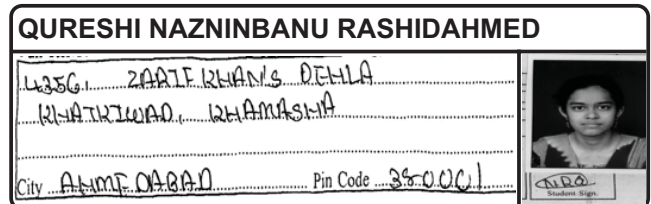 QURESHI NAZNINBANU RASHIDAHMED
4356, ZARIF KHAN'S DEHLA
KHATKIWAD, KHAMASHA
City AHMEDABAD Pin Code 380001
Student Sign.